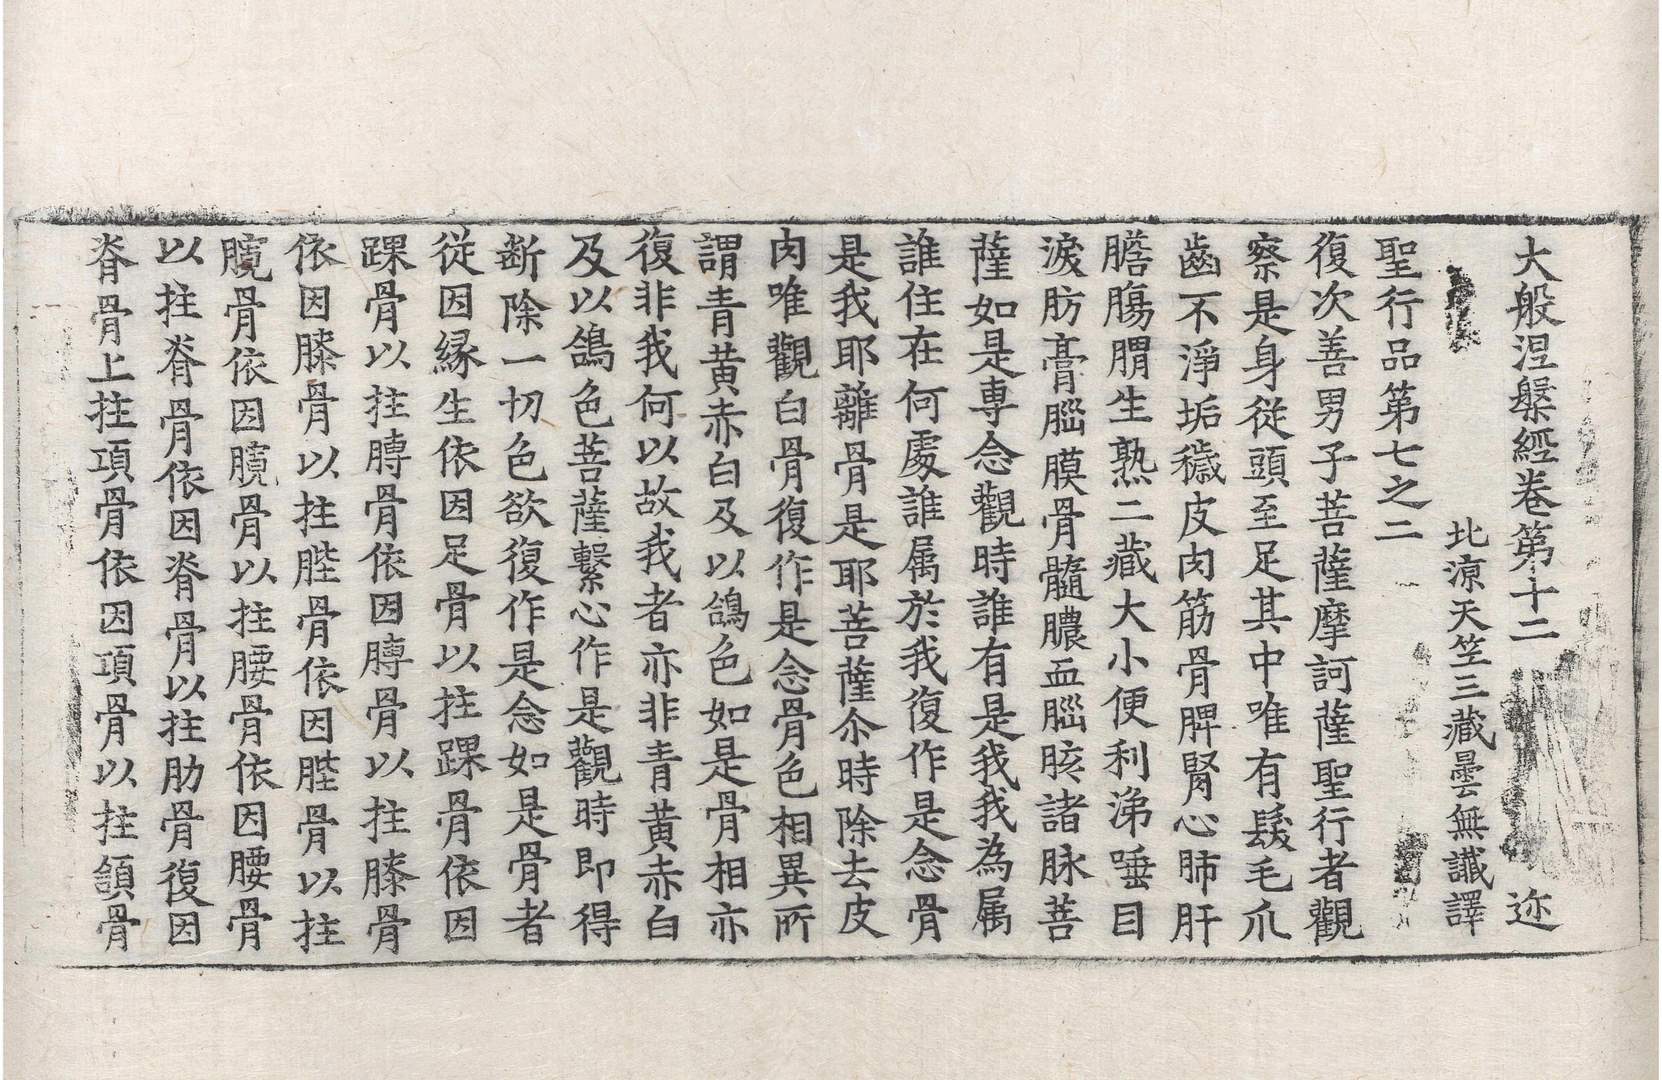 大般涅槃經卷第十二 迩
北涼天笁三藏曇無讖譯
聖行品第七之二
復次善男子菩薩摩訶薩聖行者觀
察是身從頭至足其中唯有髮毛爪
齒不淨垢穢皮肉筋骨脾腎心肺肝
膽膓胃生熟二藏大小便利涕唾目
淚肪膏腦膜骨髓膿血腦胲諸脉菩
薩如是専念觀時誰有是我我為属
誰住在何處誰属於我復作是念骨
是我耶離骨是耶菩薩尒時除去皮
肉唯觀白骨復作是念骨色相異所
謂青黄赤白及以鴿色如是骨相亦
復非我何以故我者亦非青黄赤白
及以鴿色菩薩繫心作是觀時即得
断除一切色欲復作是念如是骨者
從因縁生依因足骨以拄踝骨依因
踝骨以拄膞骨依因膞骨以拄膝骨
依因膝骨以拄䏶骨依因䏶骨以拄
臗骨依因臗骨以拄腰骨依因腰骨
以拄脊骨依因脊骨以拄肋骨復因
脊骨上拄項骨依因項骨以拄頷骨